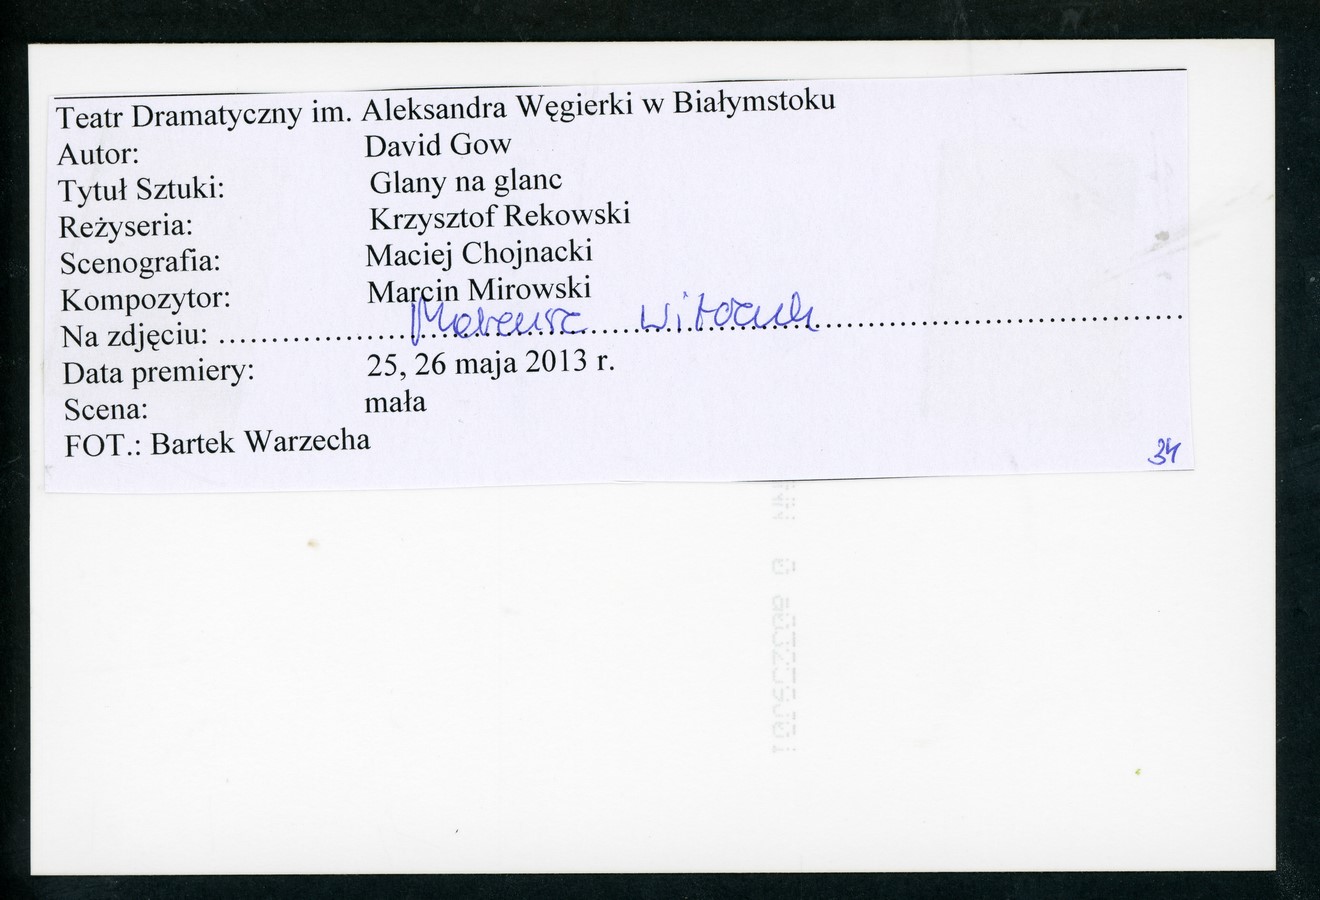 Teatr Dramatyczny im. Aleksandra Węgierki w Białymstoku
Autor: David Gow
Tytuł Sztuki: Glany na glanc
Reżyseria: Krzysztof Rekowski
Scenografia: Maciej Chojnacki
Kompozytor: Marcin Mirowski
Na zdjęciu: Mateusz Witczuk
Data premiery: 25, 26 maja 2013 r.
Scena: mała
FOT.: Bartek Warzecha
34